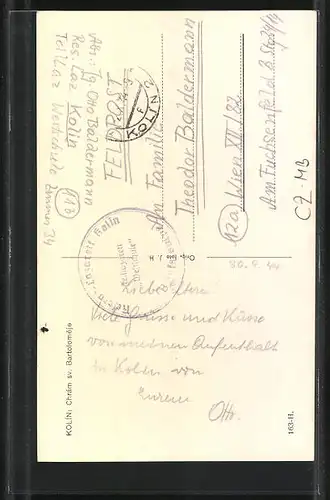 Abs.: Ig. Otto Baldermann
Res. Laz. Kolin
Teillaz. Westschule
(11b)
FELDPOST
KOLIN 2
An Familie
Theodor Baldermann
(12a) Wien XII/82
Am Fuchsenfeld
CZ-MB
Res.-Lazarett Kolin
Teillazarett
"Westschule"
Orig. foto J. H.
30.9.44
Liebe Eltern
Viele Grüsse und Küsse
von meinem Aufenthalt
in Kolin von
Eurem
Otto.
KOLÍN: Chrám sv. Bartoloměje
163-H.